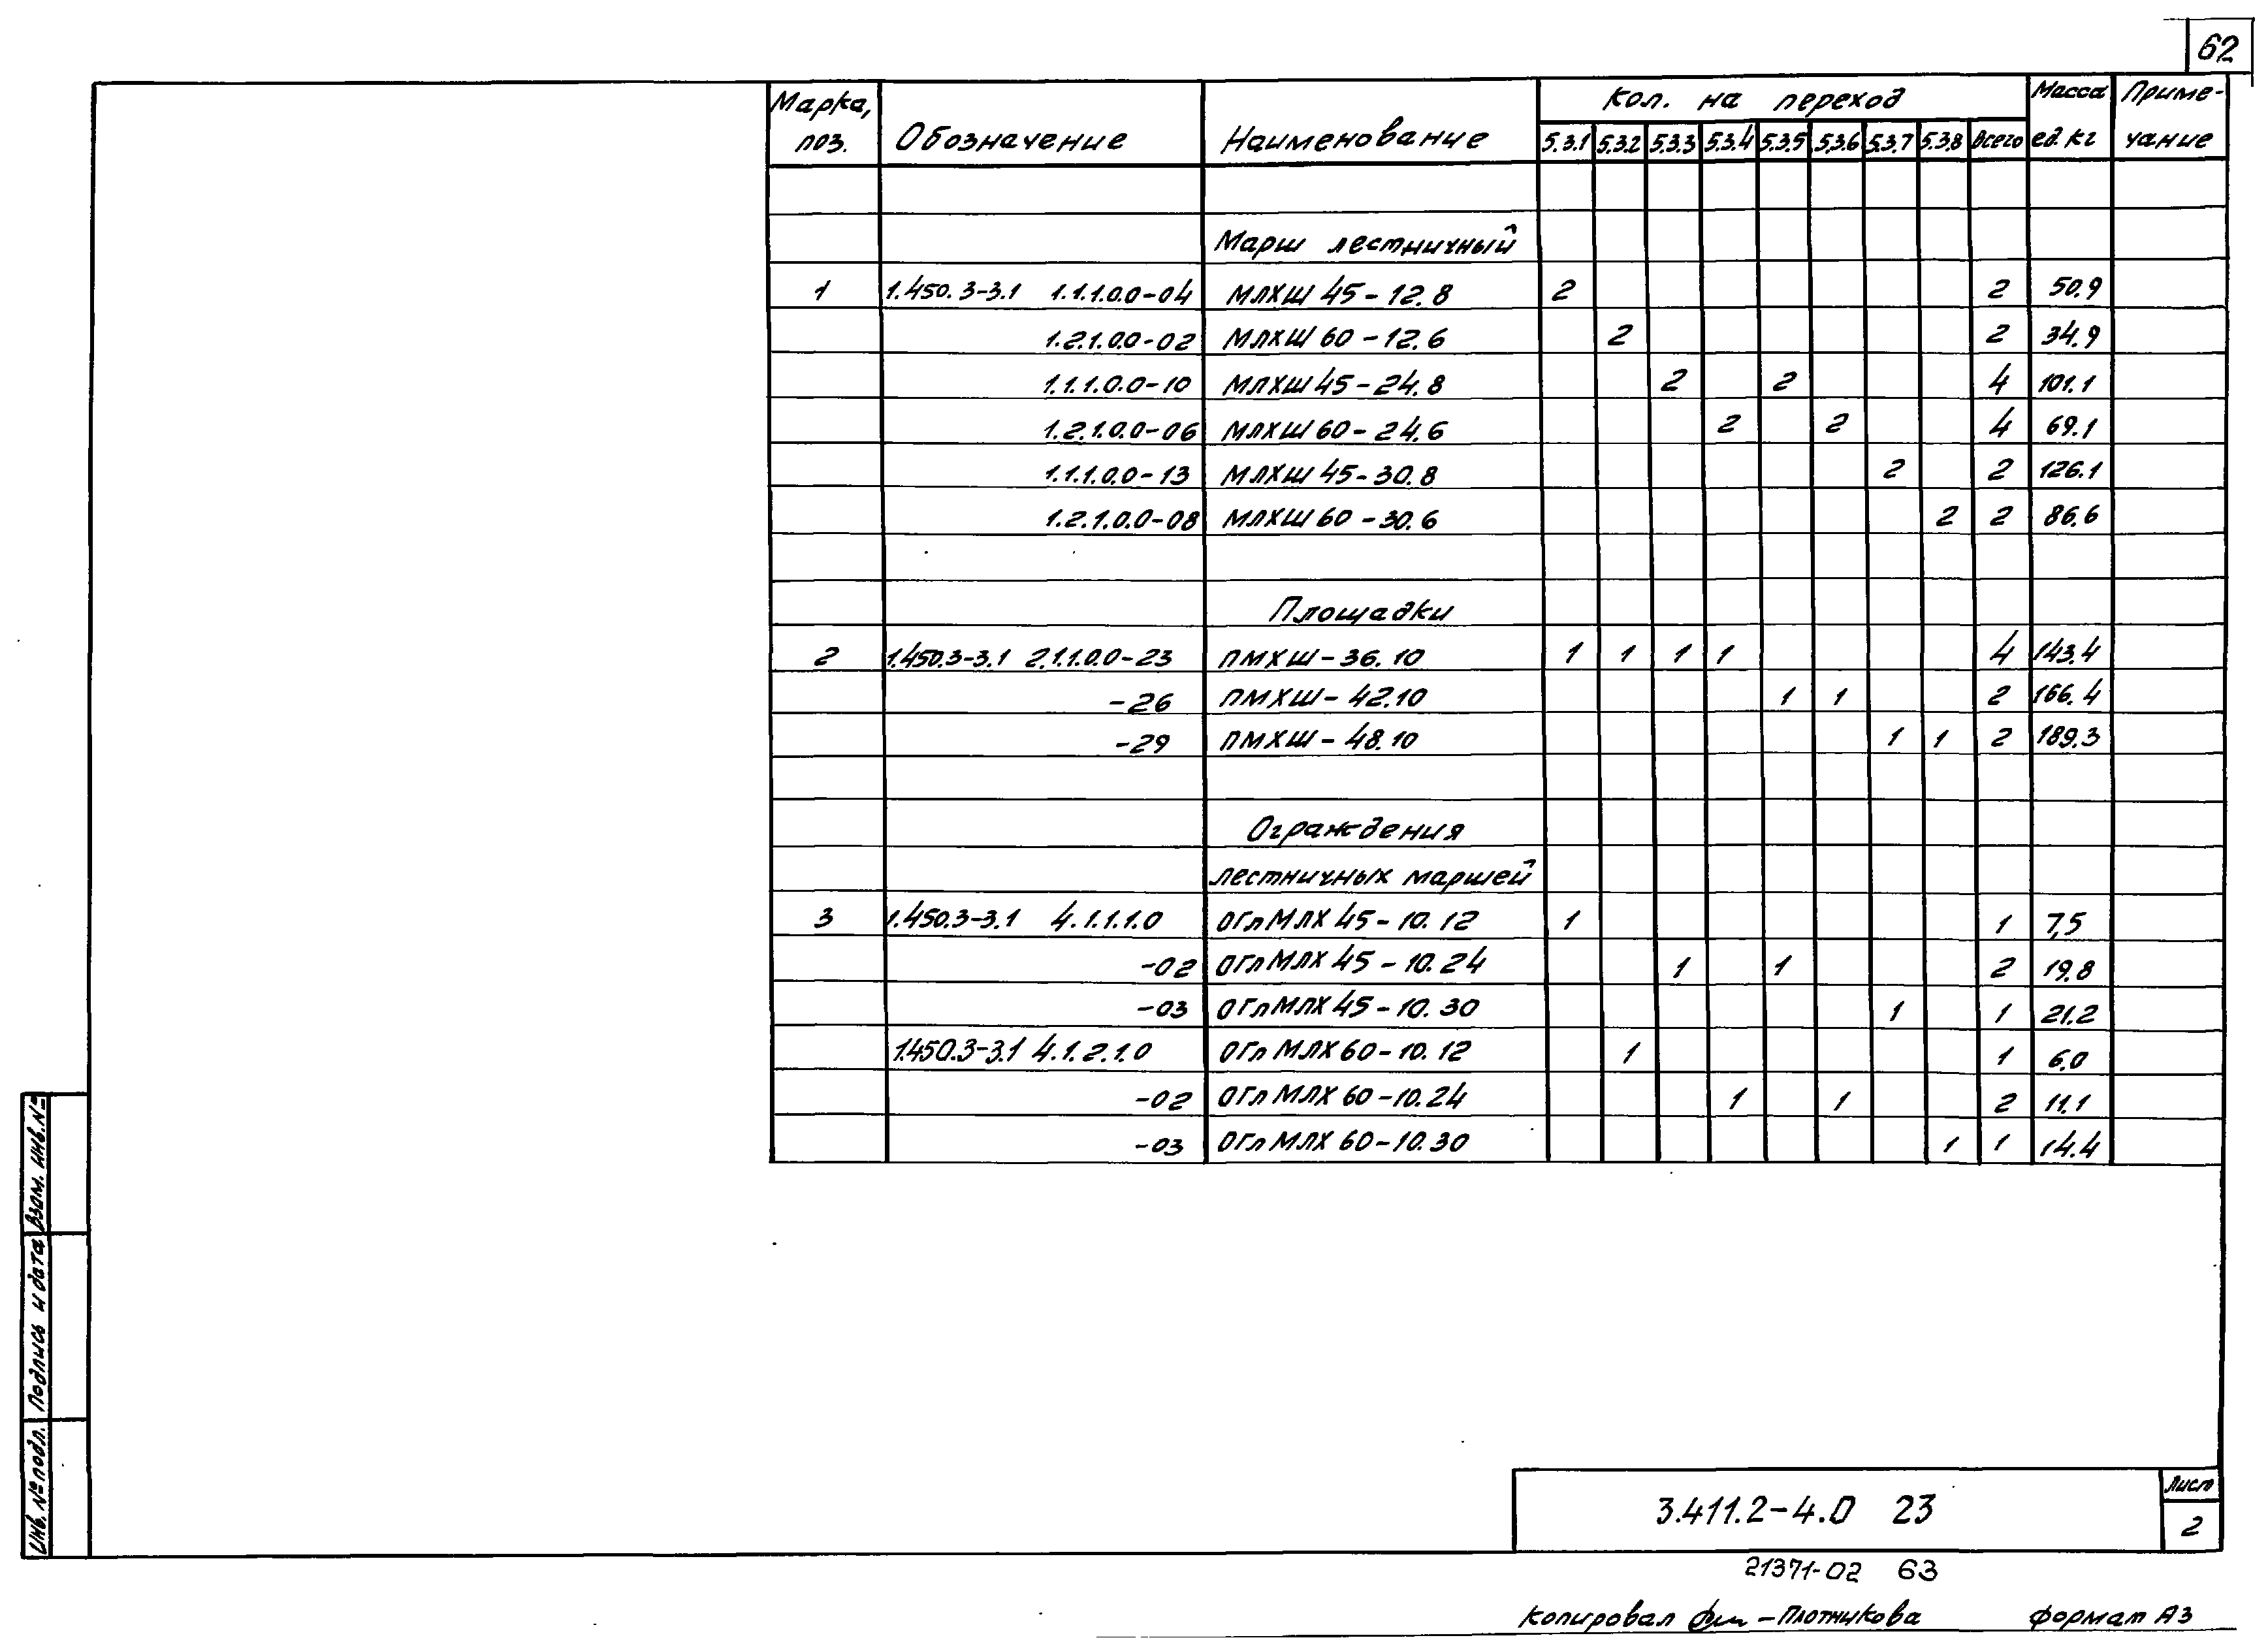 62
Марка, поз. Обозначение Наименование Кол. на переход Масса ед. кг Приме-чание
5.3.1 5.3.2 5.3.3 5.3.4 5.3.5 5.3.6 5.3.7 5.3.8 Всего
Марш лестничный
1 1.450.3-3.1 1.1.1.0.0-04 МЛХШ 45-12.8 2 2 50.9
1.2.1.0.0-02 МЛХШ 60-12.6 2 2 34.9
1.1.1.0.0-10 МЛХШ 45-24.8 2 2 4 101.1
1.2.1.0.0-06 МЛХШ 60-24.6 2 2 4 69.1
1.1.1.0.0-13 МЛХШ 45-30.8 2 2 126.1
1.2.1.0.0-08 МЛХШ 60-30.6 2 2 86.6
Площадки
2 1.450.3-3.1 2.1.1.0.0-23 ПМХШ-36.10 1 1 1 1 4 143.4
-26 ПМХШ-42.10 1 1 2 166.4
-29 ПМХШ-48.10 1 1 2 189.3
Ограждения
лестничных маршей
3 1.450.3-3.1 4.1.1.1.0 ОГлМЛХ 45-10.12 1 1 7,5
-02 ОГлМЛХ 45-10.24 1 1 2 19.8
-03 ОГлМЛХ 45-10.30 1 1 21.2
1.450.3-3.1 4.1.2.1.0 ОГлМЛХ 60-10.12 1 1 6,0
-02 ОГлМЛХ 60-10.24 1 1 2 11.1
-03 ОГлМЛХ 60-10.30 1 1 14.4
Инв. № подл. Подпись и дата Взам. инв. №
3.411.2-4.0 23
Лист
2
21371-02 63
Копировал -Плотникова Формат А3